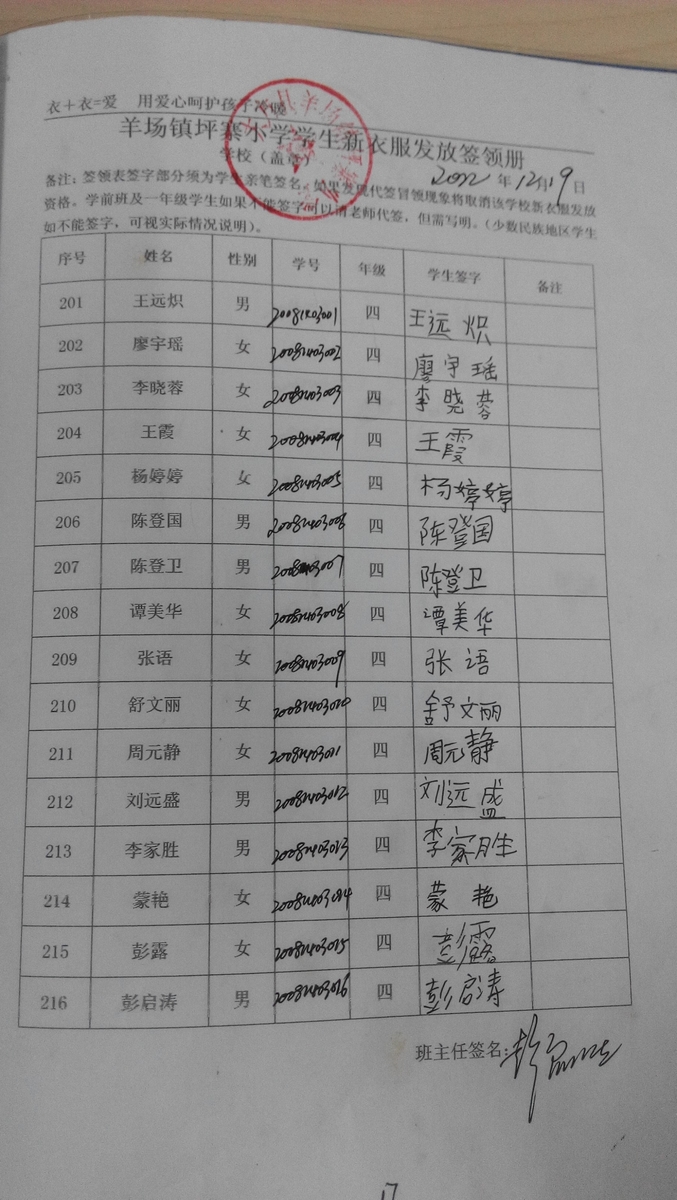 衣+衣=爱 用爱心呵护孩子冷暖
羊场镇坪寨小学学生新衣服发放签领册
学校（盖章） 2012 年 12月19日
备注：签领表签字部分须为学生亲笔签名，如果发现代签冒领现象将取消该学校新衣服发放
资格。学前班及一年级学生如果不能签字可以请老师代签，但需写明。（少数民族地区学生
如不能签字，可视实际情况说明）。
序号 姓名 性别 学号 年级 学生签字 备注
201 王远炽 男 20081403001 四 王远炽
202 廖宇瑶 女 20081403002 四 廖宇瑶
203 李晓蓉 女 20081403003 四 李晓蓉
204 王霞 女 20081403004 四 王霞
205 杨婷婷 女 20081403005 四 杨婷婷
206 陈登国 男 20081403006 四 陈登国
207 陈登卫 男 20081403007 四 陈登卫
208 谭美华 女 20081403008 四 谭美华
209 张语 女 20081403009 四 张语
210 舒文丽 女 20081403010 四 舒文丽
211 周元静 女 20081403011 四 周元静
212 刘远盛 男 20081403012 四 刘远盛
213 李家胜 男 20081403013 四 李家胜
214 蒙艳 女 20081403014 四 蒙艳
215 彭露 女 20081403015 四 彭露
216 彭启涛 男 20081403016 四 彭启涛
班主任签名：
17